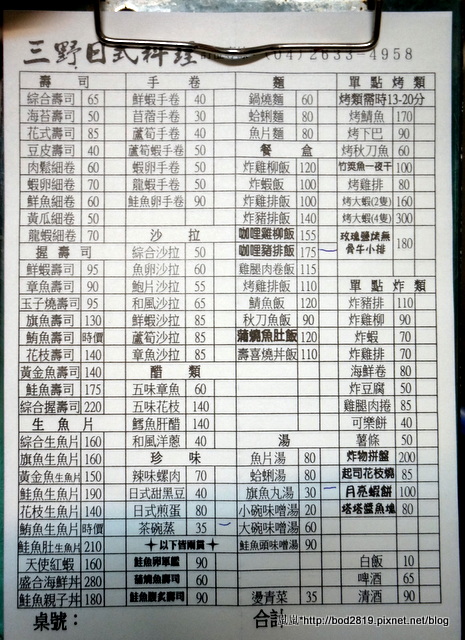 三野日式料理 (04)2633-4958
壽司 手卷 麵 單點烤類
綜合壽司 65 鮮蝦手卷 40 鍋燒麵 60 烤類需時13-20分
海苔壽司 50 苜蓿手卷 30 蛤蜊麵 80 烤鯖魚 170
花式壽司 85 蘆筍手卷 40 魚片麵 80 烤下巴 90
豆皮壽司 40 蘆筍蝦手卷 50 餐盒 烤秋刀魚 60
肉鬆細卷 60 蝦卵手卷 50 炸雞柳飯 120 竹筴魚一夜干 100
蝦卵細卷 70 龍蝦手卷 50 炸蝦飯 100 烤雞排 80
鮮魚細卷 60 鮭魚卵手卷 90 炸雞排飯 100 烤大蝦(2隻) 160
黃瓜細卷 50 炸豬排飯 140 烤大蝦(4隻) 300
龍蝦細卷 70 沙拉 咖哩雞柳飯 155 玫瑰鹽烤無骨牛小排 180
握壽司 綜合沙拉 50 咖哩豬排飯 175
鮮蝦壽司 95 魚卵沙拉 60 雞腿肉卷飯 115
章魚壽司 90 鮑片沙拉 55 烤雞排飯 110 單點炸類
玉子燒壽司 95 和風沙拉 65 鯖魚飯 120 炸豬排 110
旗魚壽司 130 鮮蝦沙拉 85 秋刀魚飯 90 炸雞柳 90
鮪魚壽司 時價 蘆筍沙拉 85 蒲燒魚肚飯 120 炸蝦 70
花枝壽司 140 章魚沙拉 85 壽喜燒丼飯 110 炸雞排 70
黃金魚壽司 140 醋類 海鮮卷 80
鮭魚壽司 175 五味章魚 60 炸豆腐 50
綜合握壽司 220 五味花枝 140 雞腿肉捲 85
生魚片 鱈魚肝醋 140 可樂餅 40
綜合生魚片 160 和風洋蔥 40 湯 薯條 50
旗魚生魚片 160 珍味 魚片湯 80 炸物拼盤 200
黃金魚生魚片 150 辣味螺肉 70 蛤蜊湯 80 起司花枝燒 85
鮭魚生魚片 190 日式甜黑豆 40 旗魚丸湯 30 月亮蝦餅 100
花枝生魚片 140 日式煎蛋 80 小碗味噌湯 20 塔塔鹽魚塊 80
鮪魚生魚片 時價 茶碗蒸 35 大碗味噌湯 60
鮭魚肚生魚片 210 以下皆兩貫 鮭魚頭味噌湯 90
天使紅蝦 160 鮭魚卵軍艦 90 白飯 10
盛合海鮮丼 280 蒲燒魚壽司 60 啤酒 65
鮭魚親子丼 180 鮭魚腹炙壽司 90 燙青菜 35 清酒 90
桌號： 合計
http://bod2819.pixnet.net/blog